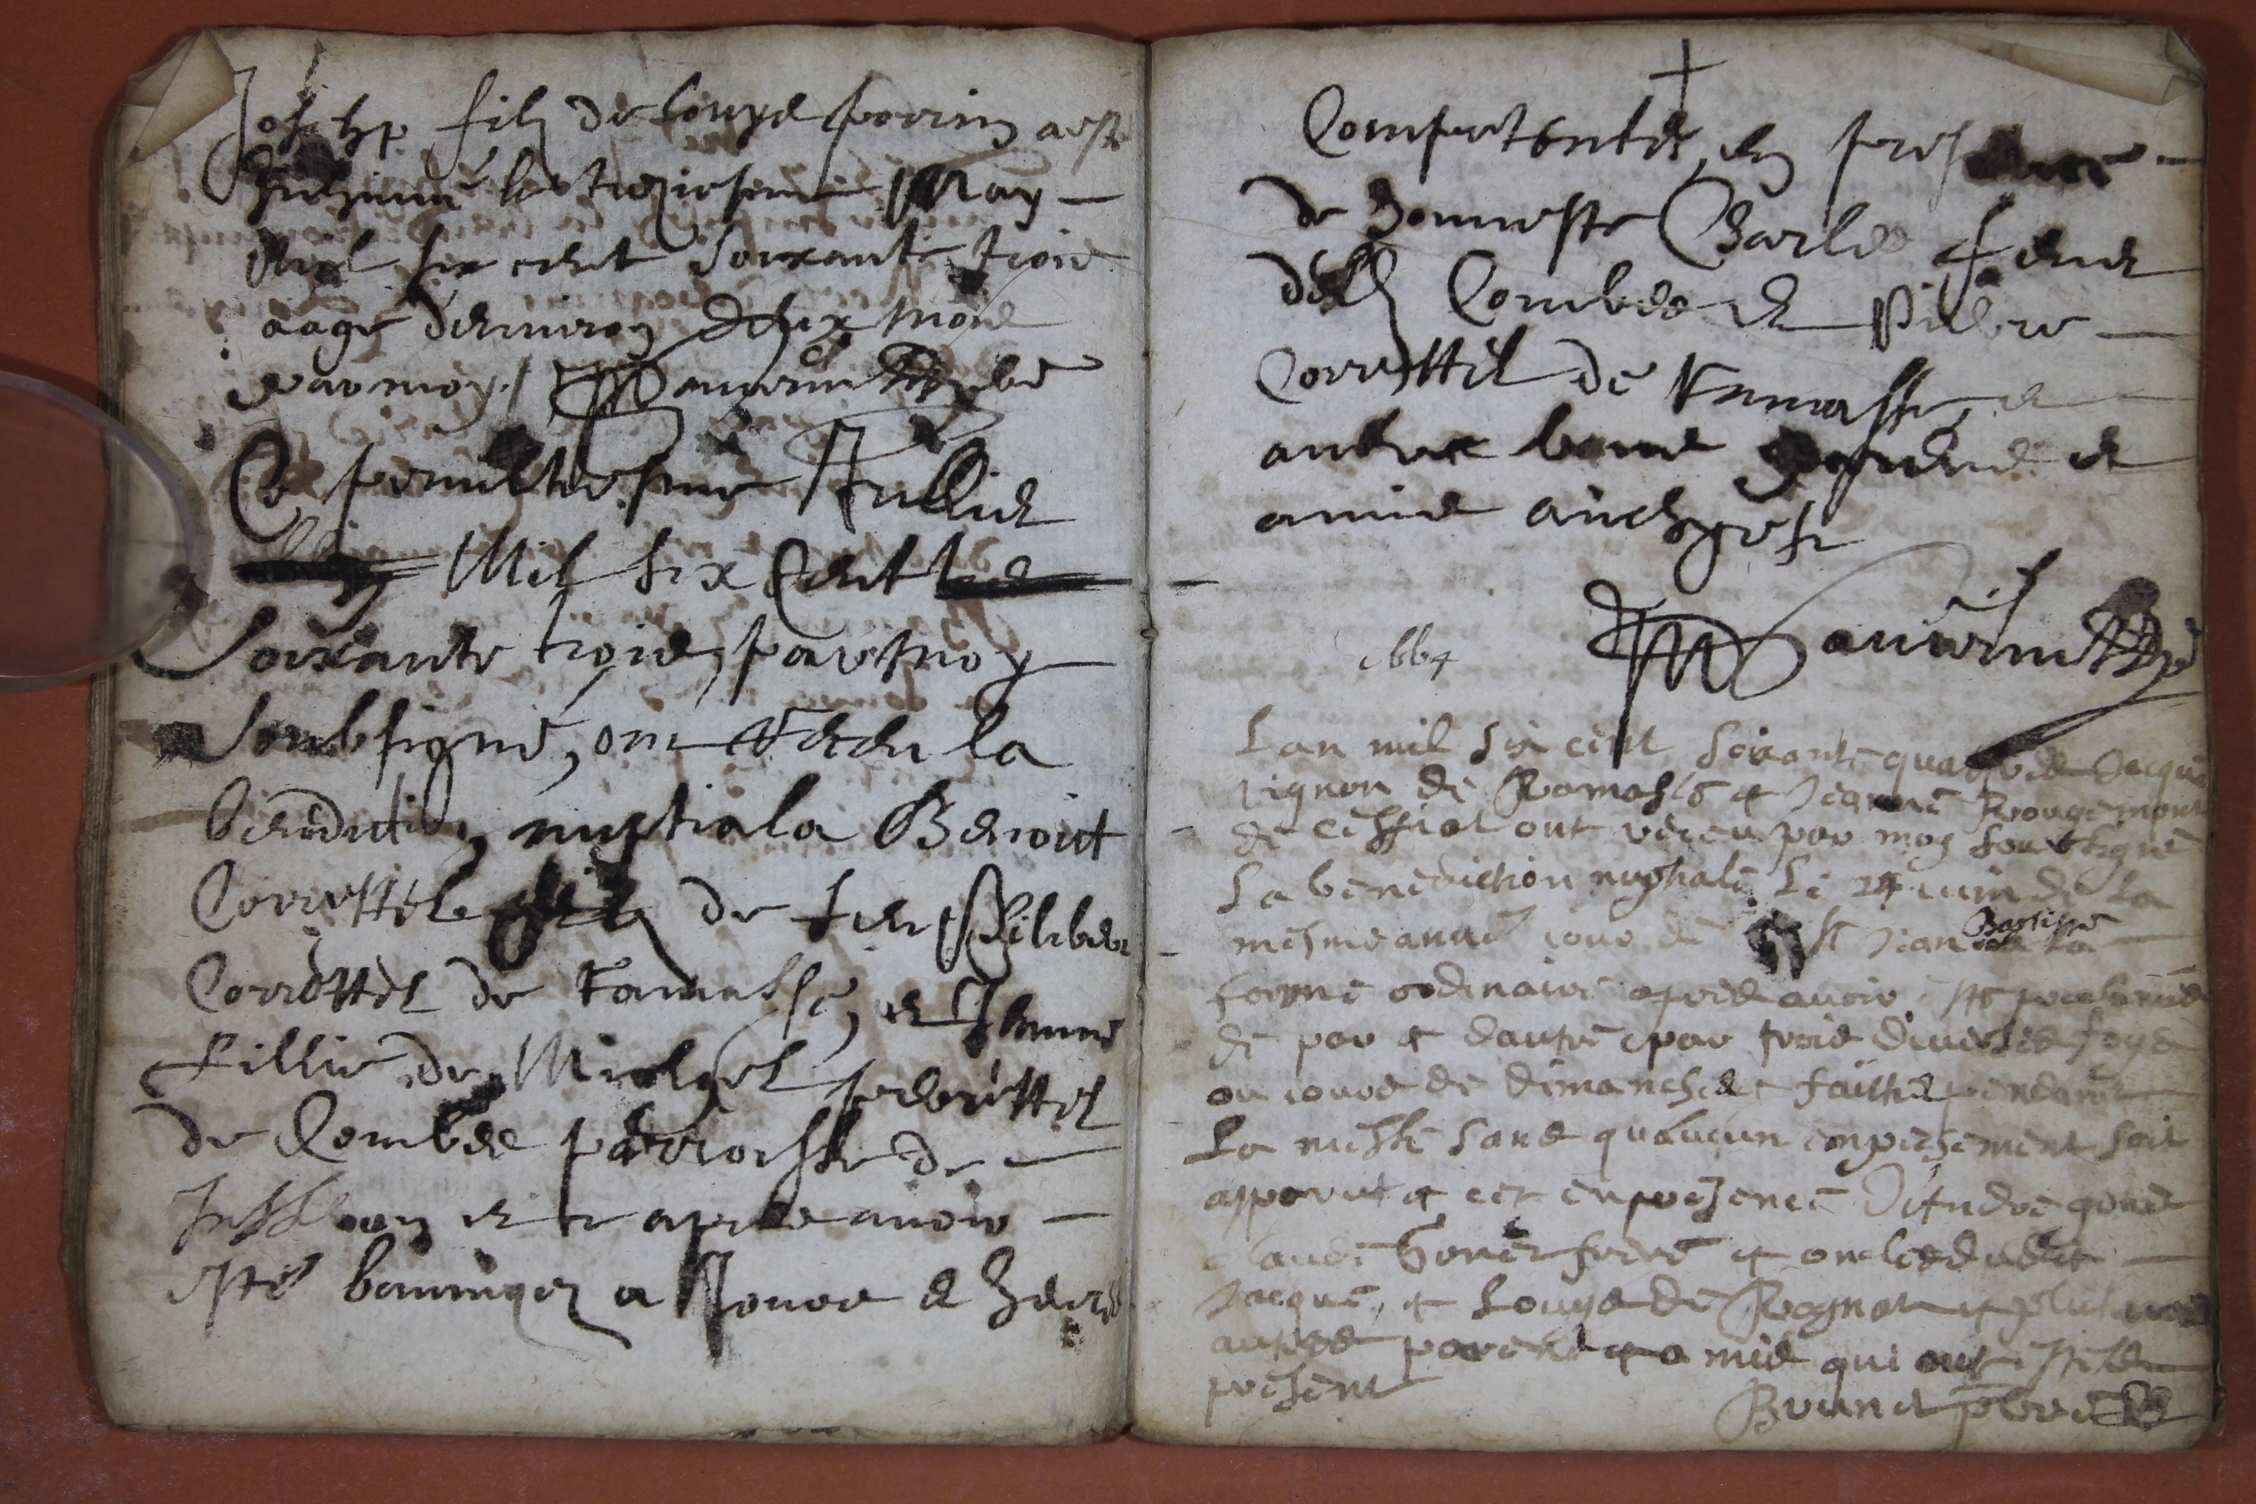 Joseph filz de Louys Perrin a esté
inhumé le treziesme May
Mil six cent soixante trois
aagé d'environ deux mois
par moy / Mauvernet pbre
Ce penultiesme Jullies
Mil six Cent
Soixante trois, par moy
Soubsigné, ont receu la
benediction nuptiala Benoict
Correttel filz de feu Philiber
Correttel de Ramasse, et Jeanne
fillie de Michel
de Combes parroisse de
et ce apres avoir
esté bannyez a Jours & heures
Competentes, en presence
de honneste Charles feuz
desd Combes et Pierre
Correttel de Ramasse, et
autres bons et
amis
1664 Mauvernet pbre
Lan mil six cent soixante quatre Jacque
vignon de Ramasse et Jeanne Rougemont
de cessiat ont receu par moy soubsigné
La benediction nuptiale Le 24 iuin de la
mesme année iour de St Jean Baptiste en la
forme ordinaire apres avoir esté proclamés
de par et dautre par trois diverses foys
au iours de dimanche et faittes pendant
La messe sans quaucun empeschement soit
apparut et cet en presence
Claude frere et oncles dudit
Jacque, et Louys de et plusieurs
autres parens et amis qui ont esté
present
Brunet pbre